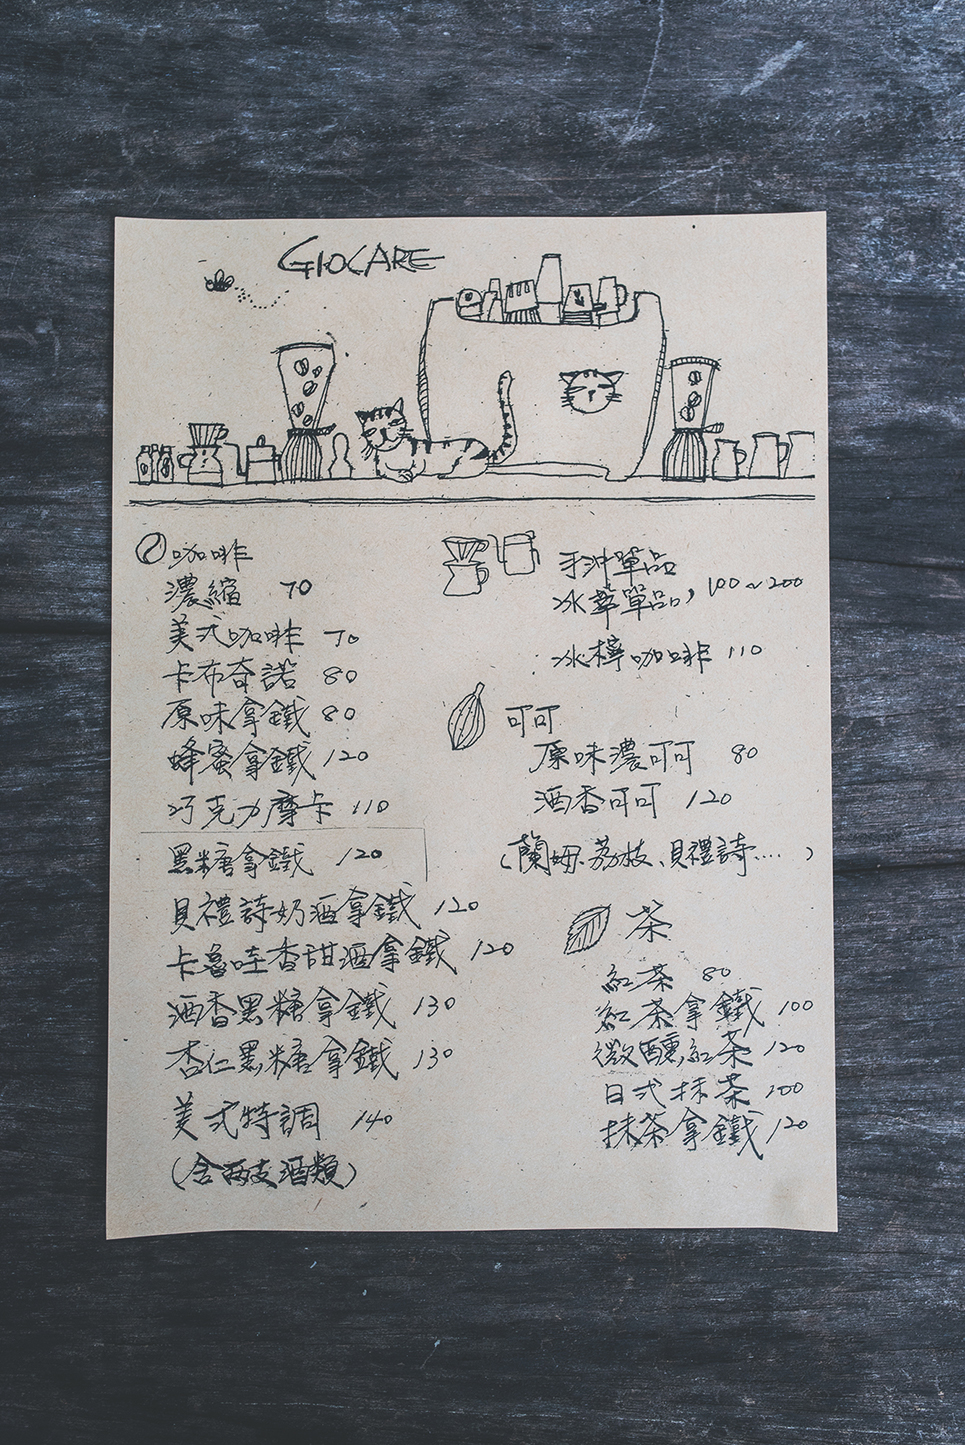 GIOCARE
咖啡
濃縮 70
美式咖啡 70
卡布奇諾 80
原味拿鐵 80
蜂蜜拿鐵 120
巧克力摩卡 110
黑糖拿鐵 120
貝禮詩奶酒拿鐵 120
卡魯哇香甜酒拿鐵 120
酒香黑糖拿鐵 130
杏仁黑糖拿鐵 130
美式特調 140
(含兩支酒類)
手沖單品
冰萃單品, 100~200
冰檸咖啡 110
可可
原味濃可可 80
酒香可可 120
(蘭姆、荔枝、貝禮詩....)
茶
紅茶 80
紅茶拿鐵 100
微醺紅茶 120
日式抹茶 100
抹茶拿鐵 120